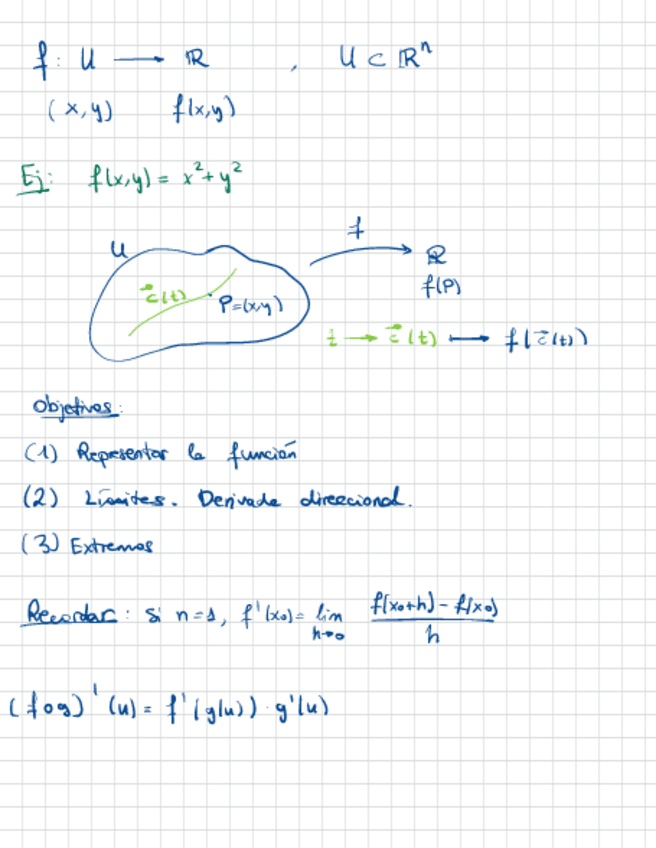 f: U ⟶ ℝ , U ⊂ ℝⁿ
(x,y) f(x,y)
Ej: f(x,y) = x²+y²
U
f
ℝ
c⃗(t)
P=(x,y)
f(P)
t → c⃗(t) ⟼ f(c⃗(t))
Objetivos:
(1) Representar la función
(2) Límites. Derivada direccional.
(3) Extremos
Recordar: si n=1, f'(x₀)= lim h→0 f(x₀+h) - f(x₀) / h
(f∘g)'(u) = f'(g(u)) · g'(u)